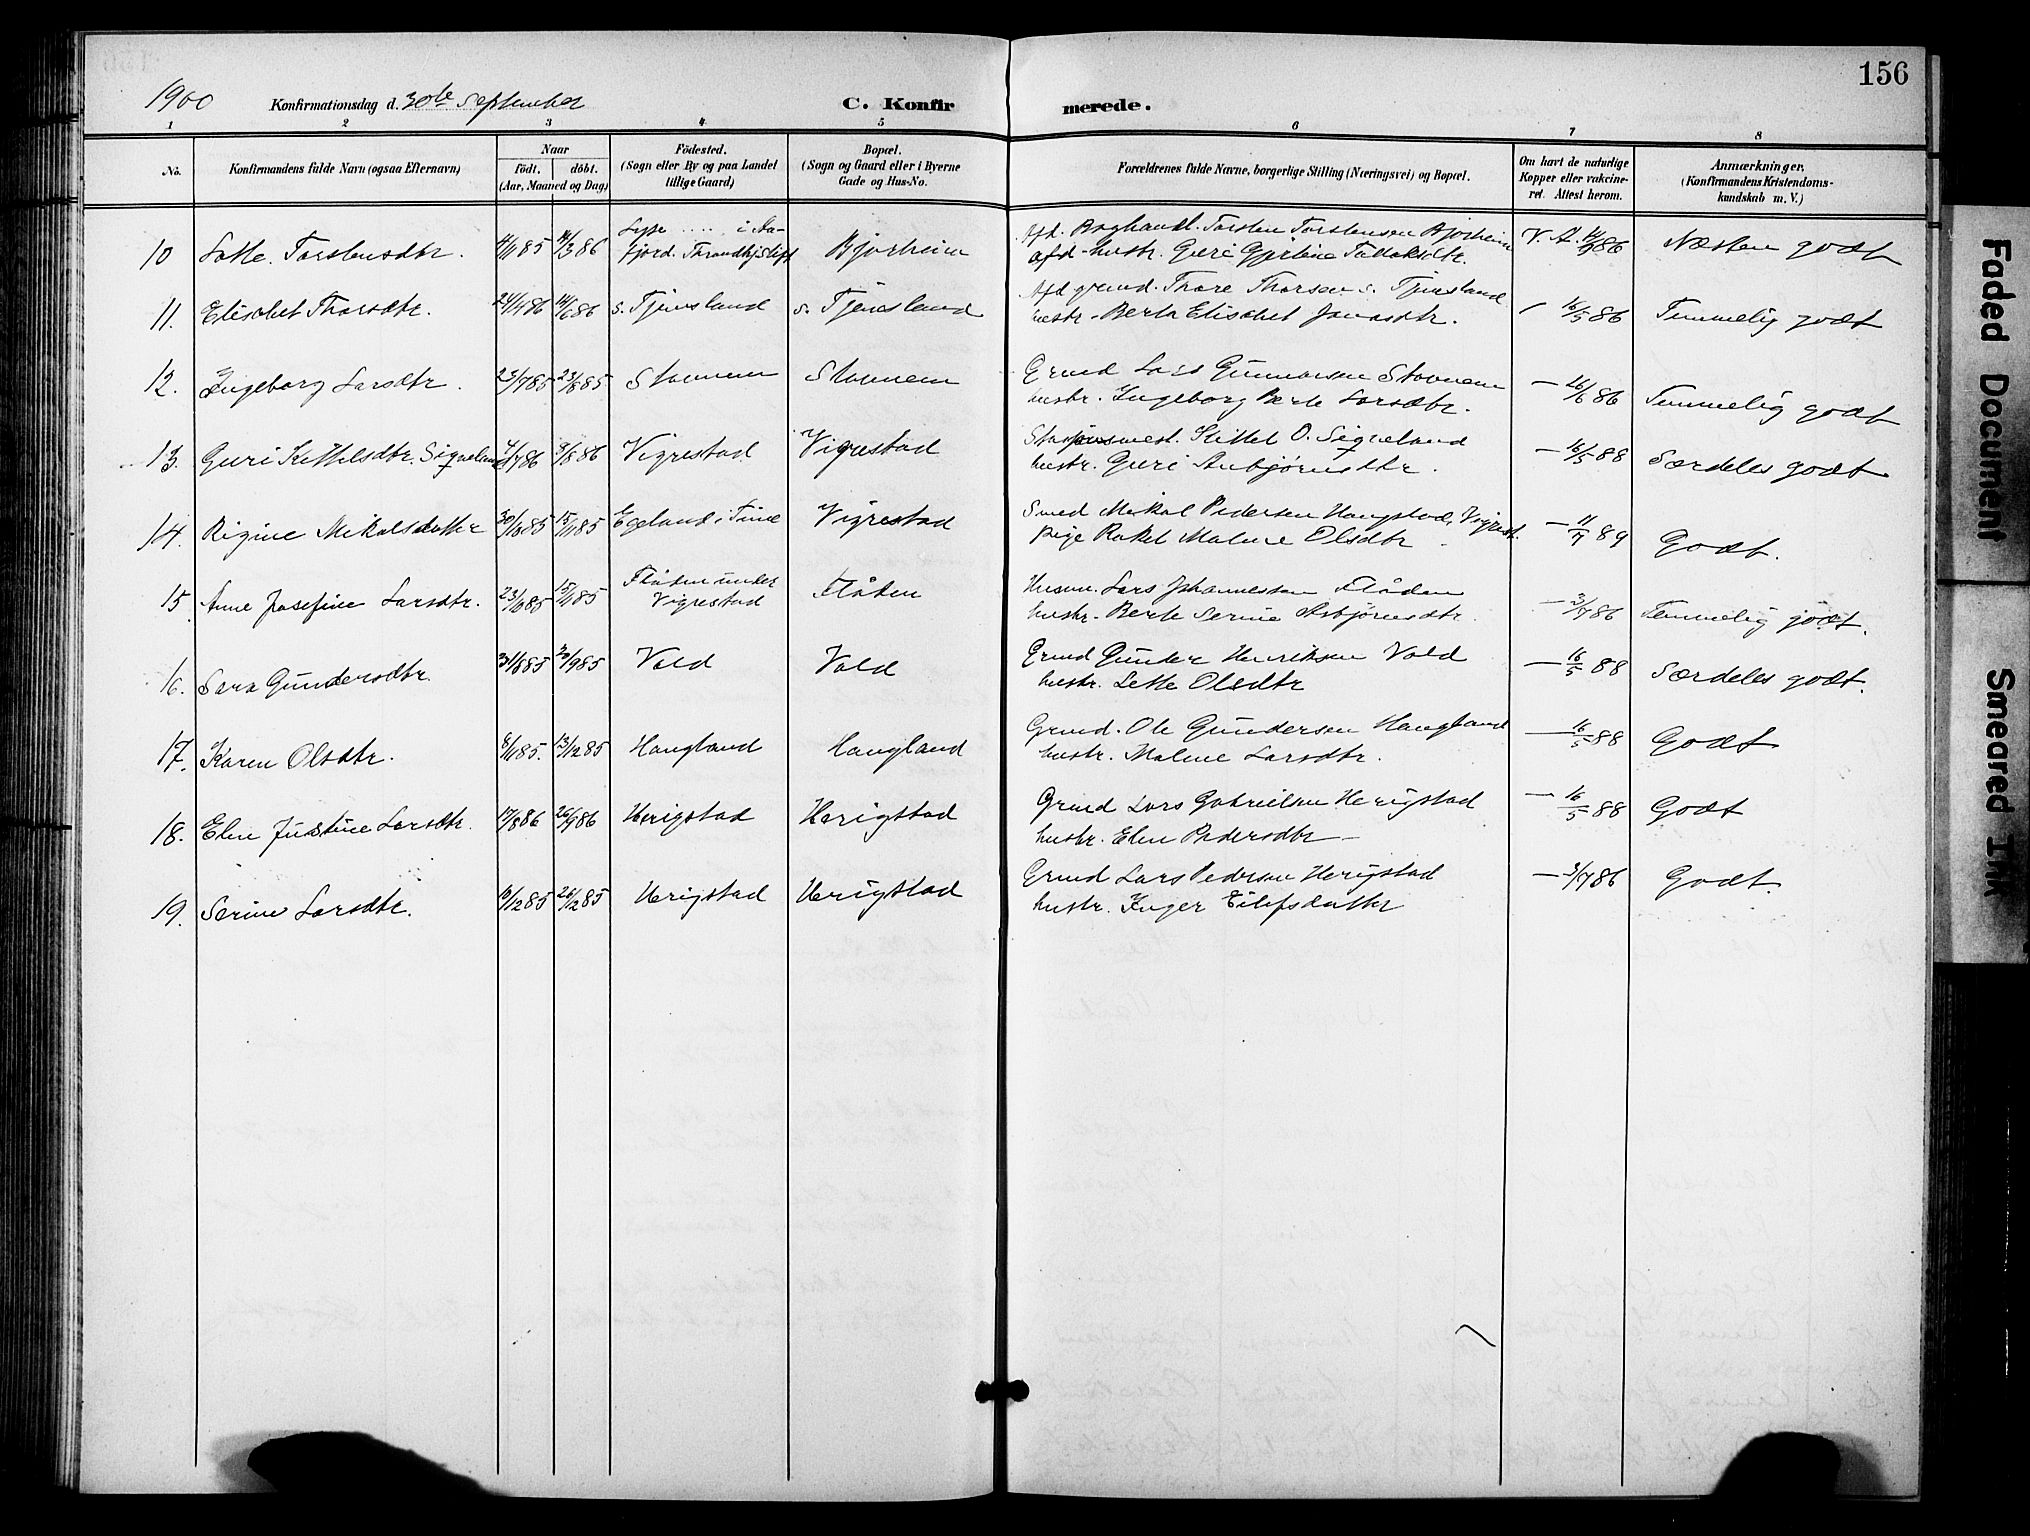 156
1900 Konfirmationsdag d. 30te September C. Konfirmerede.
1 2 3 4 5 6 7 8
No. Konfirmandens fulde Navn (ogsaa Efternavn) Naar födt. döbt. (Aar, Maaned og Dag) Födested. (Sogn eller By og paa Landet tillige Gaard) Bopæl. (Sogn og Gaard eller i Byerne Gade og Hus-No. Forældrenes fulde Navne, borgerlige Stilling (Næringsvei) og Bopæl. Om havt de naturlige Kopper eller vakcineret. Attest herom. Anmærkninger. (Konfirmandens Kristendomskundskab m. V.)
10 Torstensdtr. 4/11 85 14/3 86 i Aafjord. Bjorheim
Afd. Torsten Torstensen Bjorheim
afd. hustr. Guri V. A. Næsten godt
11. Elisabet Thorsdtr. 24/4 86 14/6 86 s. Tjensland s. Tjensland
Afd grmd. Thore Thorsen s. Tjensland
hustr. Berta Elisabet Jonasdtr. 16/5 86 Temmelig godt
12. Ingeborg Larsdtr. 23/7 85 23/8 85 Stavnem Stavnem
Grmd Lars Gunnarsen Stavnem
hustr. Ingeborg Berte Larsdtr. 26/6 86 Temmelig godt
13. Guri Kittelsdtr. Signeland 4/7 86 8/8 86 Vigrestad Vigrestad
Stasjonsmest. Kittel O. Signeland
hustr. Guri Anbjørnsdtr. 16/5 88 Særdeles godt
14. Rigine Mikalsdatter 30/8 85 15/11 85 Egeland i Time Vigrestad
Smed Mikal Pedersen Haugstad, Vigrest.
Pige Rakel Malene Olsdtr 11/9 89 Godt.
15. Anne Josefine Larsdtr. 23/10 85 15/11 85 Flåten under Vigrestad Flåten
Husm. Lars Johannessen Flåden
hustr. Berte Serine Asbjørnsdtr. 3/7 86 Temmelig godt.
16. Sara Gundersdtr. 31/8 85 20/9 85 Vold Vold
Grmd Gunder Henriksen Vold
hustr. Lette Olsdtr 16/5 88 Særdeles godt.
17. Karen Olsdtr. 8/11 85. 13/12 85 Haugland Haugland
Grmd. Ole Gundersen Haugland
hustr. Malene Larsdtr. 16/5 88 Godt
18. Elen Justine Larsdtr. 17/8 86 26/9 86 Herigstad Herigstad
Grmd Lars Gabrielsen Herigstad
hustr. Elen Pedersdtr 16/5 88 Godt
19. Serine Larsdtr. 10/12 85 26/12 85 Herigstad Herigstad
Grmd Lars Pedersen Herigstad
hustr. Inger Eilefsdatter 3/7 86 Godt.
Faded Document
Smeared Ink